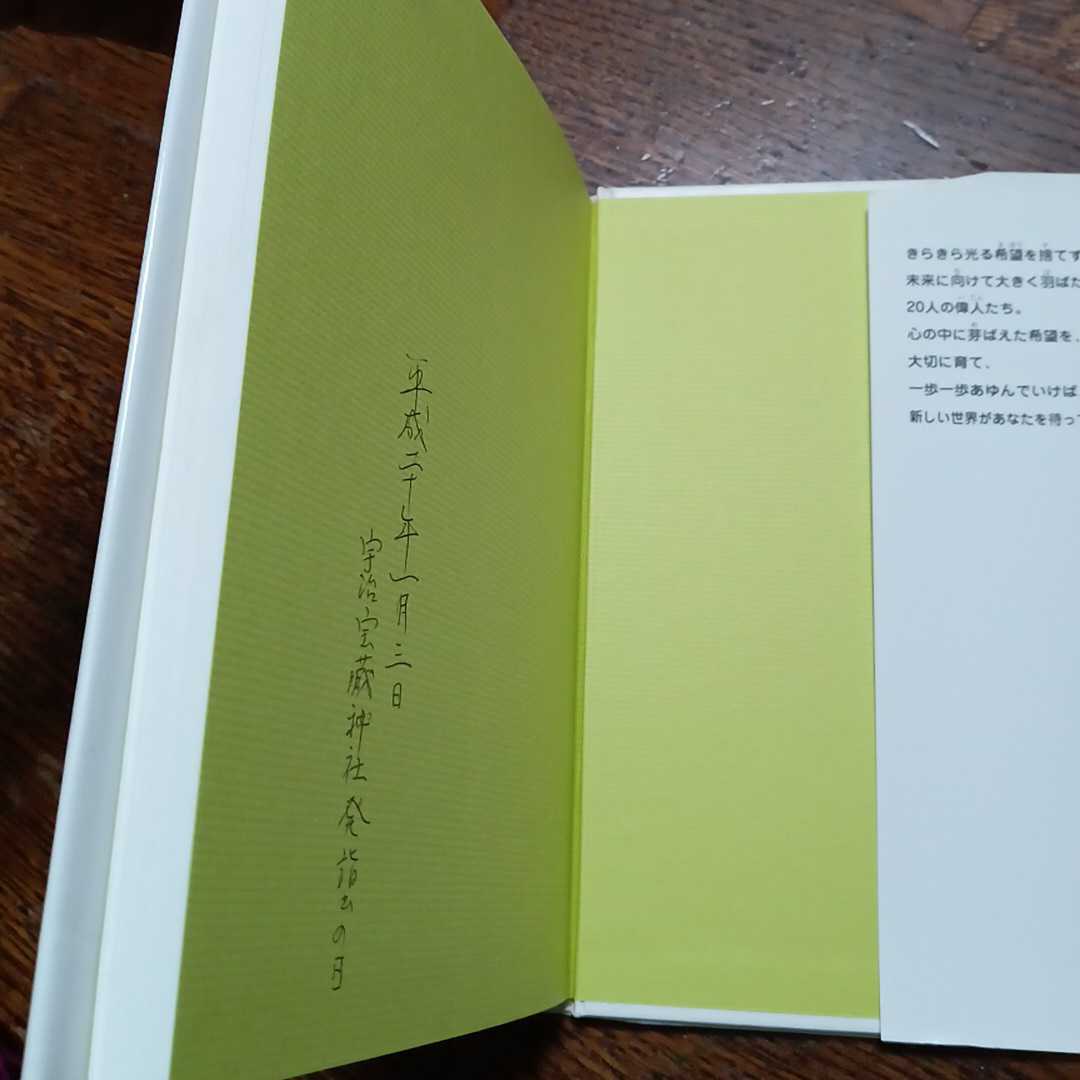 平成二十年一月三日
宇治宝蔵神社発詣の日
きらきら光る希望を捨てず
未来に向けて大きく羽ばた
20人の偉人たち。
心の中に芽ばえた希望を、
大切に育て、
一歩一歩あゆんでいけば
新しい世界があなたを待って